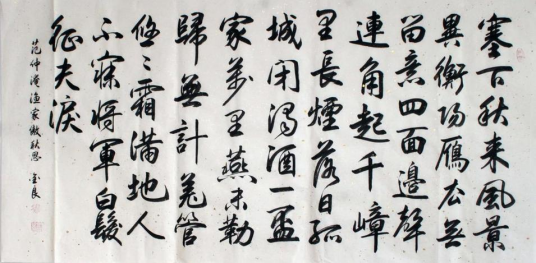 塞百秋来風景
異衡阳鴈去無
留意四面邊聲
連角起千嶂
里長煙落日孤
城闭濁酒一盃
家萬里燕未勒
歸無計羌管
悠々霜满地人
不寐将軍白髮
征夫淚
范仲淹渔家傲秋思 良